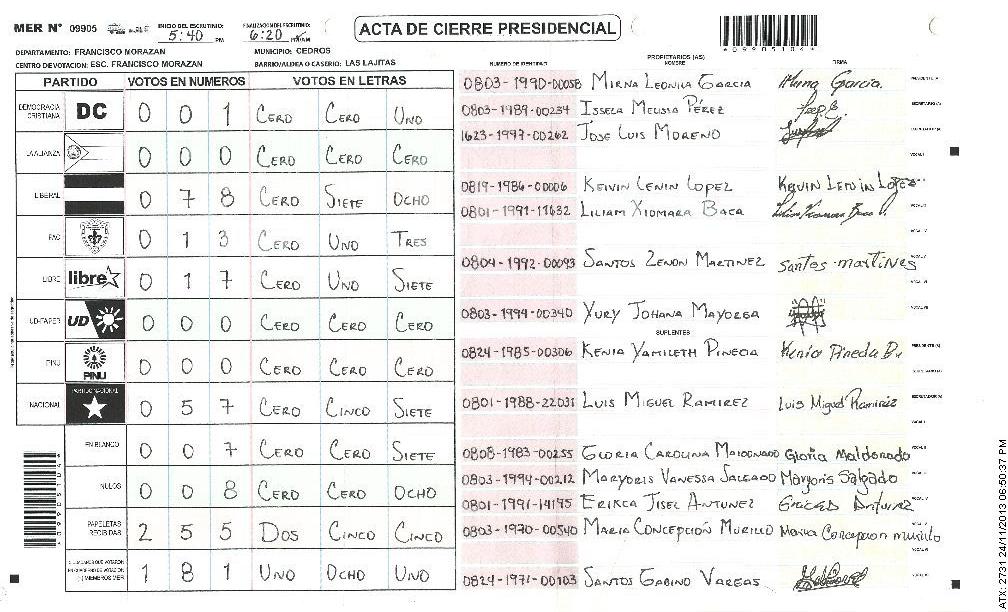 MER Nº 09905
INICIO DEL ESCRUTINIO: 5:40 PM
FINALIZACION DEL ESCRUTINIO: 6:20
ACTA DE CIERRE PRESIDENCIAL
09905104
DEPARTAMENTO: FRANCISCO MORAZAN
MUNICIPIO: CEDROS
CENTRO DE VOTACION: ESC. FRANCISCO MORAZAN
BARRIO/ALDEA O CASERIO: LAS LAJITAS
PARTIDO VOTOS EN NUMEROS VOTOS EN LETRAS
DEMOCRACIA CRISTIANA DC 0 0 1 CERO CERO UNO
LA ALIANZA 0 0 0 CERO CERO CERO
LIBERAL 0 7 8 CERO SIETE OCHO
PAC 0 1 3 CERO UNO TRES
LIBRE libre 0 1 7 CERO UNO SIETE
UD-FAPER UD 0 0 0 CERO CERO CERO
PINU PINU 0 0 0 CERO CERO CERO
NACIONAL PARTIDO NACIONAL 0 5 7 CERO CINCO SIETE
EN BLANCO 0 0 7 CERO CERO SIETE
NULOS 0 0 8 CERO CERO OCHO
PAPELETAS RECIBIDAS 2 5 5 DOS CINCO CINCO
1 8 1 UNO OCHO UNO
NUMERO DE IDENTIDAD PROPIETARIOS (AS) NOMBRE FIRMA
0803-1990-00058 MIRNA LEONILA GARCIA Mirna Garcia.
0803-1989-00234 ISSELA MELISSA PÉREZ
1623-1997-00262 JOSE LUIS MORENO
0819-1986-00006 KEIVIN LENIN LOPEZ KEIVIN LENIN LOPEZ
0801-1991-11632 LILIAM XIOMARA BACA
0804-1992-00093 SANTOS ZENON MARTINEZ santos martines
0803-1994-00340 YURY JOHANA MAYORGA
SUPLENTES
0824-1985-00306 KENIA YAMILETH PINEDA Kenia Pineda B.
0801-1988-22031 LUIS MIGUEL RAMIREZ Luis Miguel Ramirez
0808-1983-00255 GLORIA CAROLINA MALDONADO Gloria Maldonado
0803-1994-00212 MARYORIS VANESSA SALGADO Maryoris Salgado
0801-1991-14195 ERIKCA JISEL ANTUNEZ
0803-1970-00540 MARIA CONCEPCIÓN MURILLO Maria Concepcion murillo
0824-1971-00103 SANTOS GABINO VARGAS
ATX: 2731 24/11/2013 06:50:37 PM